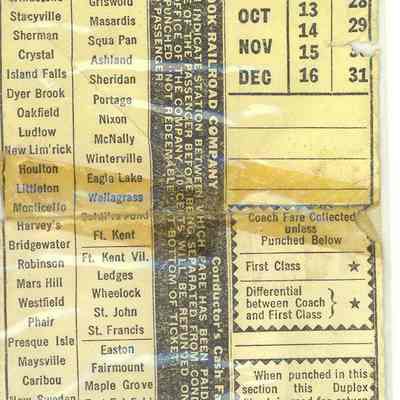 Stacyville
Sherman
Crystal
Island Falls
Dyer Brook
Oakfield
Ludlow
New Lim'rick
Houlton
Littleton
Monticello
Harvey's
Bridgewater
Robinson
Mars Hill
Westfield
Phair
Presque Isle
Maysville
Caribou
New Sweden
Griswold
Masardis
Squa Pan
Ashland
Sheridan
Portage
Nixon
McNally
Winterville
Eagle Lake
Wallagrass
Ft. Kent
Ft. Kent Vil.
Ledges
Wheelock
St. John
St. Francis
Easton
Fairmount
Maple Grove
OOK RAILROAD COMPANY
Conductor's Cash Fa
INDICATE STATION BETWEEN WHICH FARE HAS BEEN PAID
OF THE PASSENGER BEFORE BEING SEPARATED FROM
OFFICE OF THE COMPANY.
NOT REDEEMABLE
BOTTOM OF TICKET.
PASSENGER.
OCT
NOV
DEC
13
14
15
16
28
29
30
31
Coach Fare Collected
unless
Punched Below
First Class ★
Differential
between Coach
and First Class } ★
When punched in this
section this Duplex